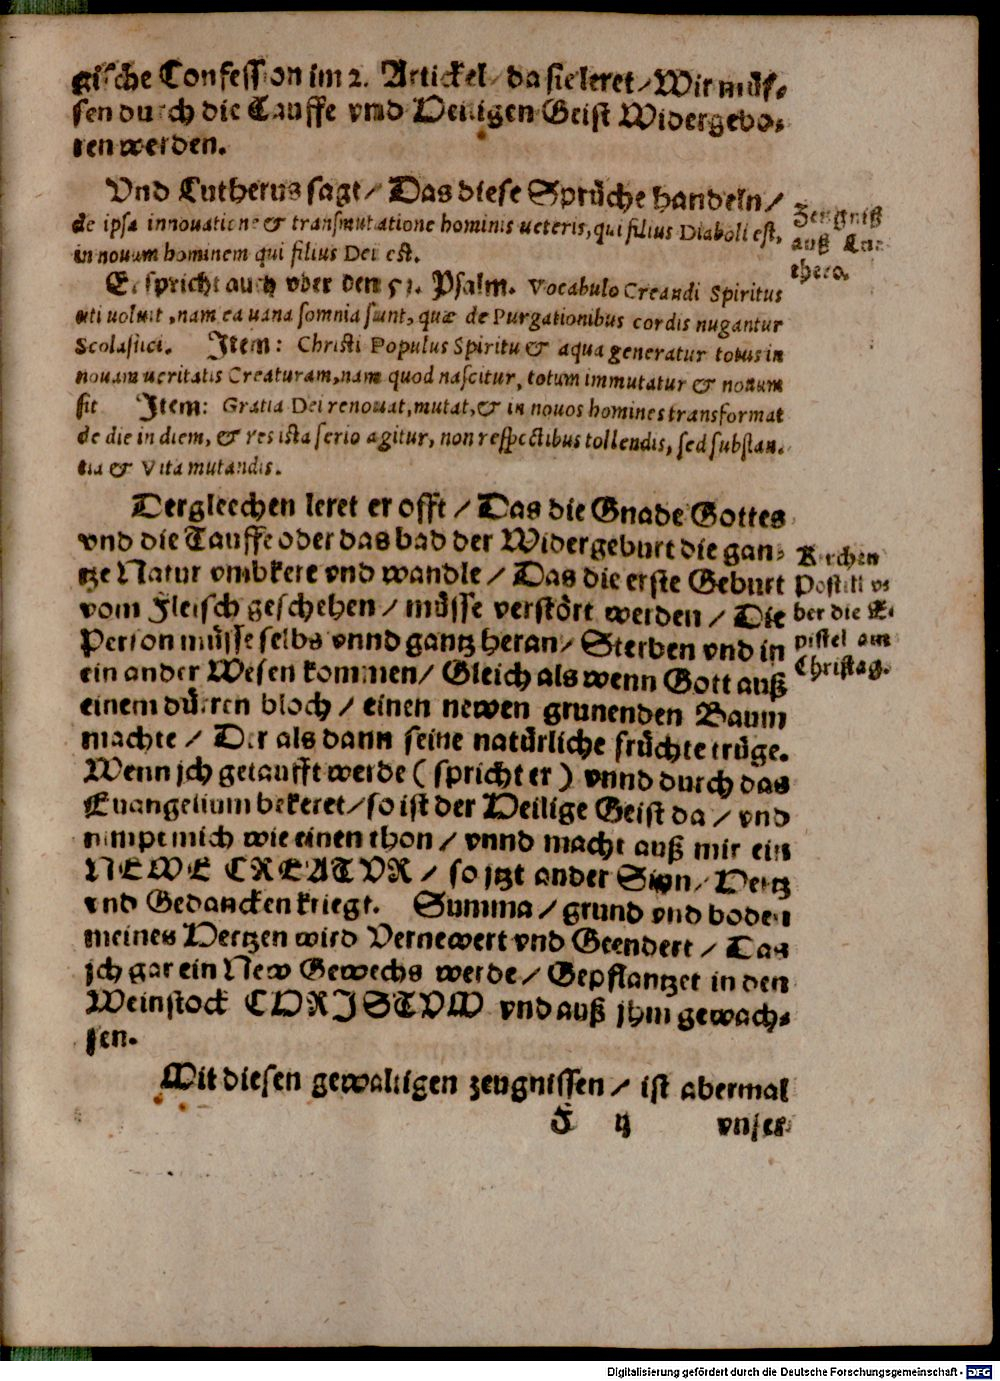 gische Confession im 2. Artickel / da sie leret / Wir müs⸗
sen durch die Tauffe vnd Heiligen Geist Widergebo⸗
ren werden.
Vnd Lutherus sagt / Das diese Sprüche handeln /
de ipsa innouatione & transmutatione hominis ueteris, qui filius Diaboli est,
in nouum hominem qui filius Dei est.
Er spricht auch vber den 51. Psalm. Vocabulo Creandi Spiritus
uti uoluit, nam ea uana somnia sunt, quæ de Purgationibus cordis nugantur
Scolastici. Item: Christi Populus Spiritu & aqua generatur totus in
nouam ueritatis Creaturam, nam quod nascitur, totum immutatur & nouum
fit Item: Gratia Dei renouat, mutat, & in nouos homines transformat
de die in diem, & res ista serio agitur, non respectibus tollendis, sed substan⸗
tia & Vita mutandis.
Zeugniß
auß Lu⸗
thero.
Dergleichen leret er offt / Das die Gnade Gottes
vnd die Tauffe oder das bad der Widergeburt die gan⸗
tze Natur vmbkere vnd wandle / Das die erste Geburt
vom Fleisch geschehen / müsse verstört werden / Die
Person müsse selbs vnnd gantz heran / Sterben vnd in
ein ander Wesen kommen / Gleich als wenn Gott auß
einem dürren bloch / einen newen grunenden Baum
machte / Der als dann seine natürliche früchte trüge.
Wenn jch getaufft werde ( spricht er ) vnnd durch das
Euangelium bekeret / so ist der Heilige Geist da / vnd
nimpt mich wie einen thon / vnnd macht auß mir ein
NEWE CREATVR / so jtzt ander Sinn / Hertz
vnd Gedancken kriegt. Summa / grund vnd boden
meines Hertzen wird Vernewert vnd Geendert / Das
jch gar ein New Gewechs werde / Gepflantzet in den
Weinstock CHRISTVM vnd auß jhm gewach⸗
sen.
Kirchen
Postill v⸗
ber die E⸗
pistel am
Christag.
Mit diesen gewaltigen zeugnissen / ist abermal
F ij vnser
Digitalisierung gefördert durch die Deutsche Forschungsgemeinschaft - DFG